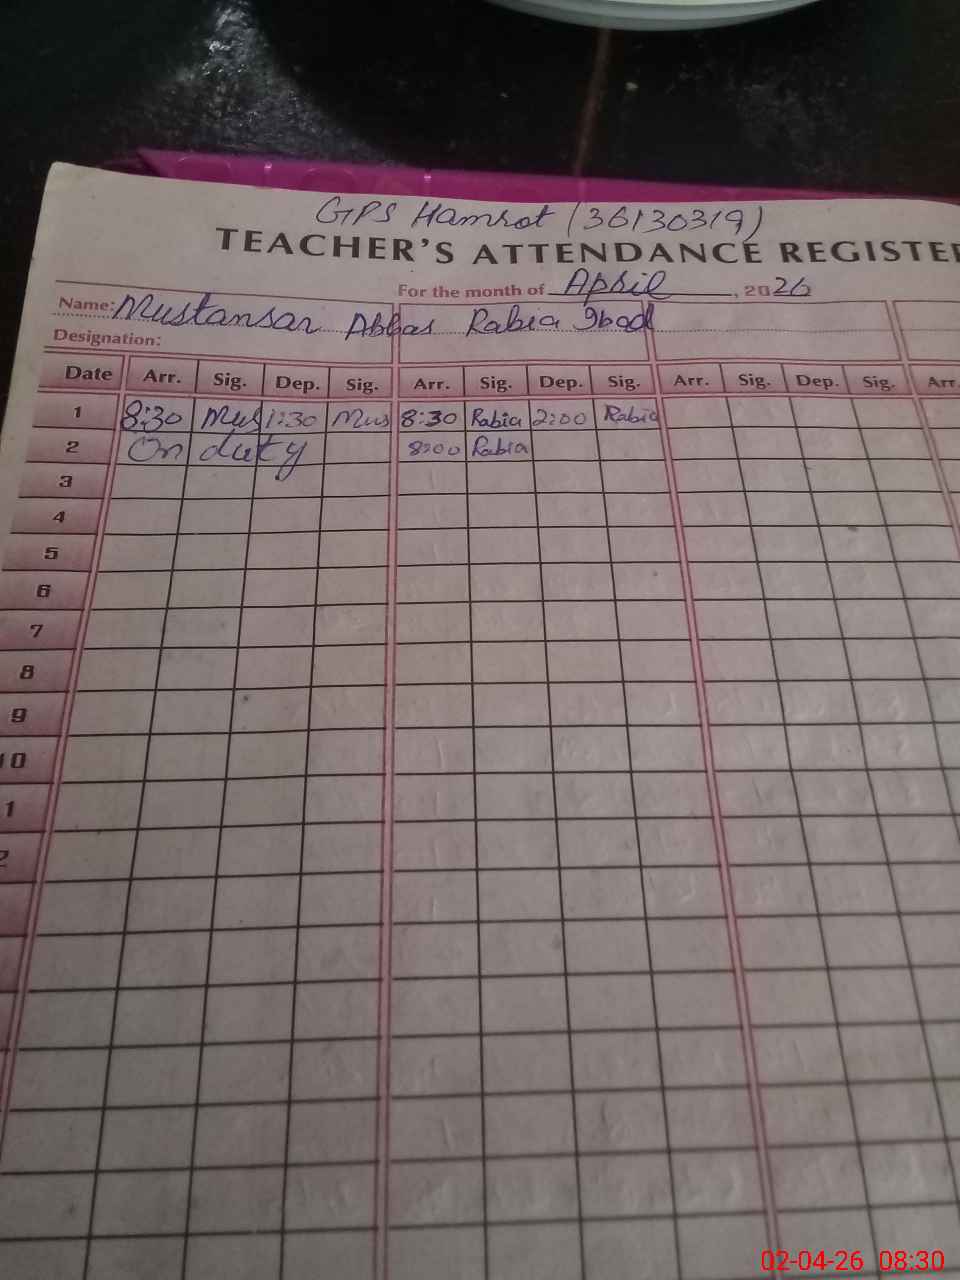 GPS Hamrot (36130319)
TEACHER'S ATTENDANCE REGISTE
For the month of April, 2026
Name: Mustansar Abbas Rabia Ibad
Designation:
Date Arr. Sig. Dep. Sig. Arr. Sig. Dep. Sig. Arr. Sig. Dep. Sig. Arr.
1 8:30 Mus 1:30 Mus 8:30 Rabia 2:00 Rabia
2 On duty 8:00 Rabia
3
4
5
6
7
8
9
10
1
2
02-04-26 08:30